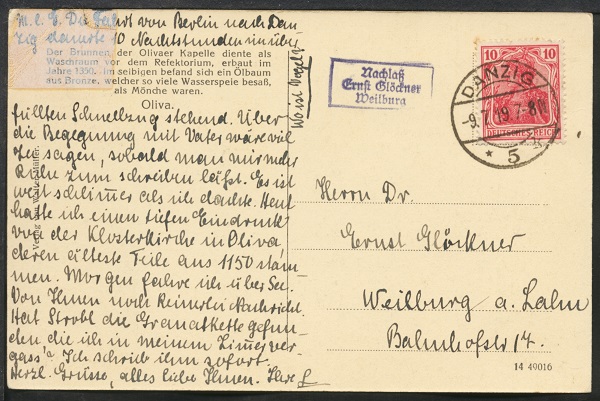 M. l. E. Die Fahrt von Berlin nach Dan-
zig dauerte 10 Nachtstunden im über-
Der Brunnen, der Olivaer Kapelle diente als
Waschraum vor dem Refektorium, erbaut im
Jahre 1350. Im seibigen befand sich ein Ölbaum
aus Bronze, welcher so viele Wasserspeie besaß,
als Mönche waren.
Oliva.
füllten Schnellzug stehend. Über
die Begegnung mit Vater wäre viel
zu sagen, sobald man mir mehr
Ruhe zum schreiben läßt. Es ist
weit schlimmer als ich dachte. Heut
hatte ich einen tiefen Eindruck
von der Klosterkirche in Oliva,
deren älteste Teile aus 1150 stam-
men. Morgen fahre ich über See.
Von Ihnen noch keinerlei Nachricht.
Hat Strobl die Granatkette gefun-
den die ich in meinem Zimmer ver-
gass? Ich schrieb ihm sofort.
Herzl. Grüsse, alles liebe Ihnen. Ihre
Wo ist Vogel?
Verlag
Nachlaß
Ernst Glöckner
Weilburg
10 10
DEUTSCHES REICH
DANZIG
-9.7.19.7-8
* 5
Herrn Dr.
Ernst Glöckner
Weilburg a. Lahn
Bahnhofstr 14.
14 49016